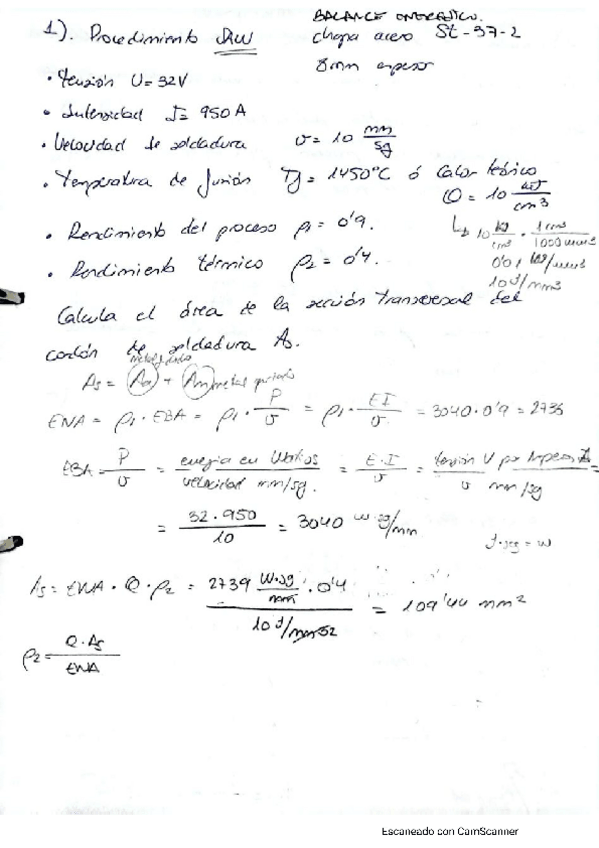 BALANCE ENERGÉTICO.
1). Procedimiento SAW
chapa acero St-37-2
8mm espesor
• Tensión U = 32V
• Intensidad I = 950 A
• Velocidad de soldadura v = 10 mm/sg
• Temperatura de fusión Tf = 1450ºC ó Calor teórico
Q = 10 KJ/cm3
• Rendimiento del proceso ρ1 = 0'9.
↳ 10 KJ/cm3 · 1cm3/1000mm3
• Rendimiento térmico ρ2 = 0'4.
0'01 KJ/mm3
10 J/mm3
Calcula el área de la sección transversal del
cordón de soldadura As.
As = Aa + Am metal
ENA = ρ1 · EBA = ρ1 · P/v = ρ1 · EI/v = 3040 · 0'9 = 2736
EBA = P/v = energia en Watios/velocidad mm/sg. = E·I/v = tensión V por Amperios I/v mm/sg =
= 32.950/10 = 3040 w·sg/mm
J·seg = w
As = ENA · Q · ρ2 = 2739 W·sg/mm · 0'4 / 10 J/mm = 109'44 mm2
ρ2 = Q·As/ENA
Escaneado con CamScanner